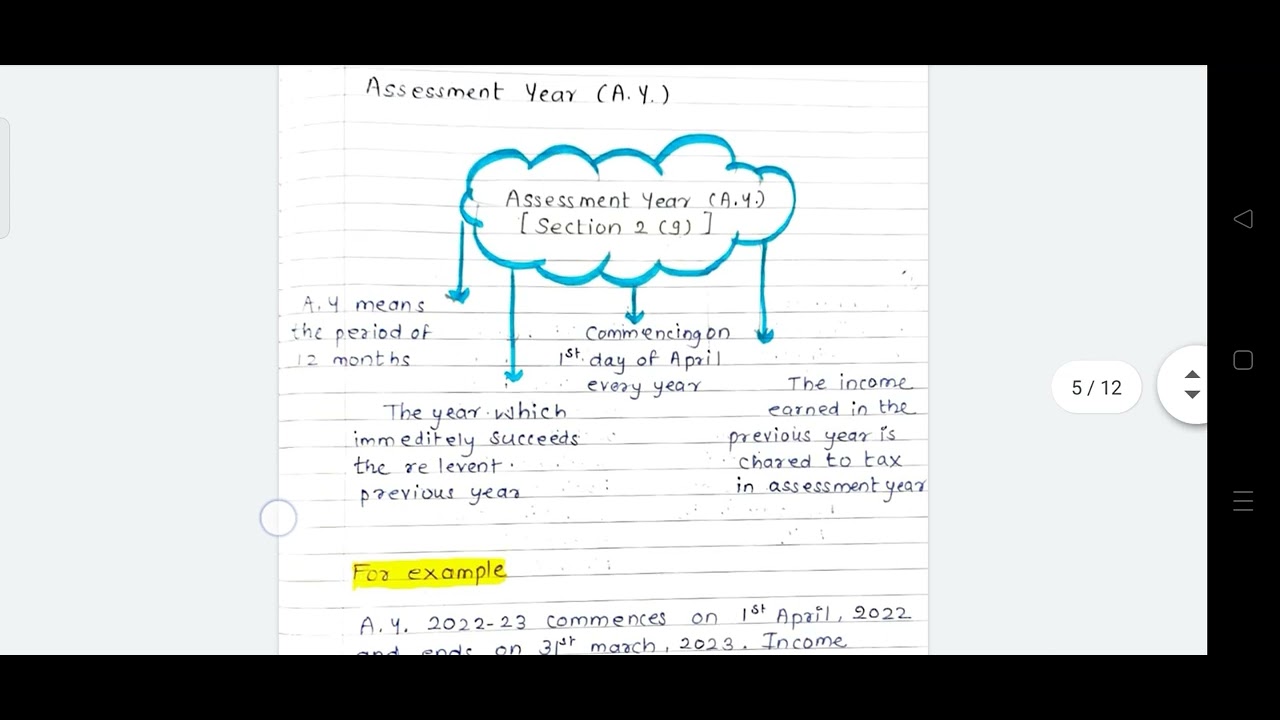 Assessment Year (A.Y.)
Assessment Year (A.Y.)
[ Section 2 (9) ]
A.Y means
the period of
12 months
The year which
immeditely succeeds
the relevent
previous year
Commencing on
1st day of April
every year
The income
earned in the
previous year is
chared to tax
in assessment year
For example
A.Y. 2022-23 commences on 1st April, 2022
and ends on 31st march, 2023. Income
5 / 12